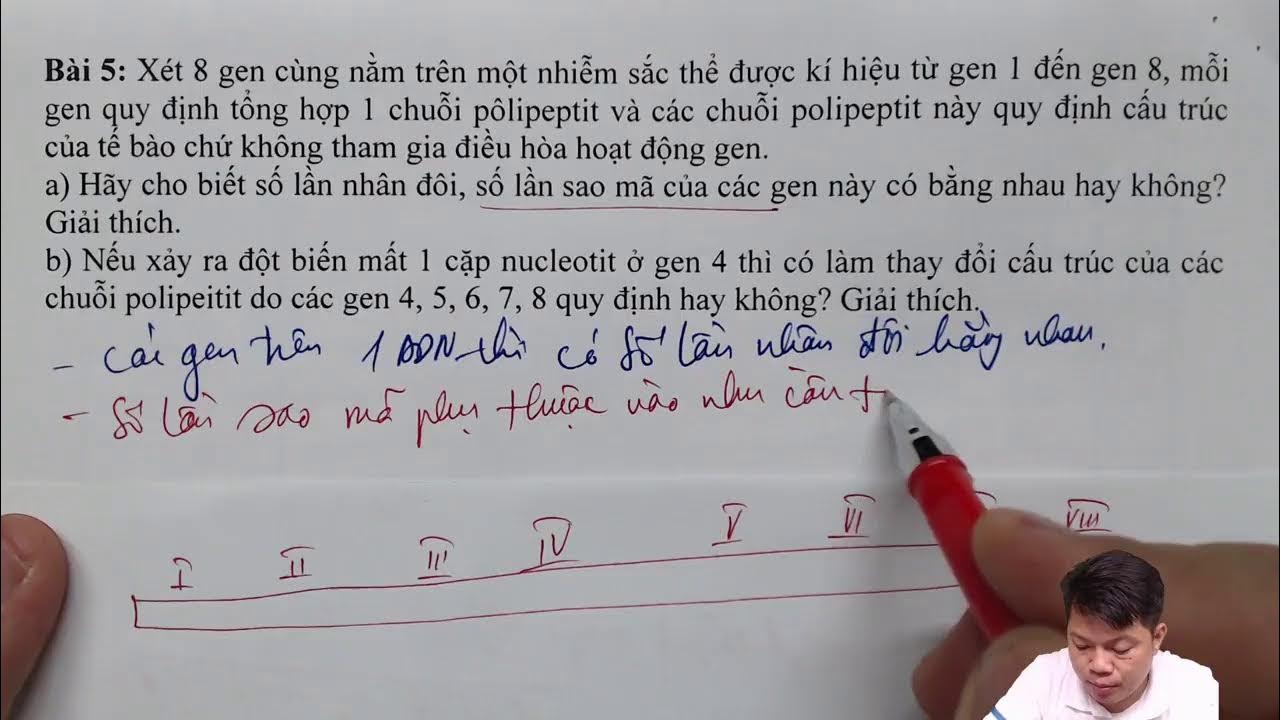 Bài 5: Xét 8 gen cùng nằm trên một nhiễm sắc thể được kí hiệu từ gen 1 đến gen 8, mỗi
gen quy định tổng hợp 1 chuỗi pôlipeptit và các chuỗi polipeptit này quy định cấu trúc
của tế bào chứ không tham gia điều hòa hoạt động gen.
a) Hãy cho biết số lần nhân đôi, số lần sao mã của các gen này có bằng nhau hay không?
Giải thích.
b) Nếu xảy ra đột biến mất 1 cặp nucleotit ở gen 4 thì có làm thay đổi cấu trúc của các
chuỗi polipeitit do các gen 4, 5, 6, 7, 8 quy định hay không? Giải thích.
- Các gen trên 1 ADN thì có số lần nhân đôi bằng nhau.
- Số lần sao mã phụ thuộc vào nhu cầu t
I II III IV V VI VIII